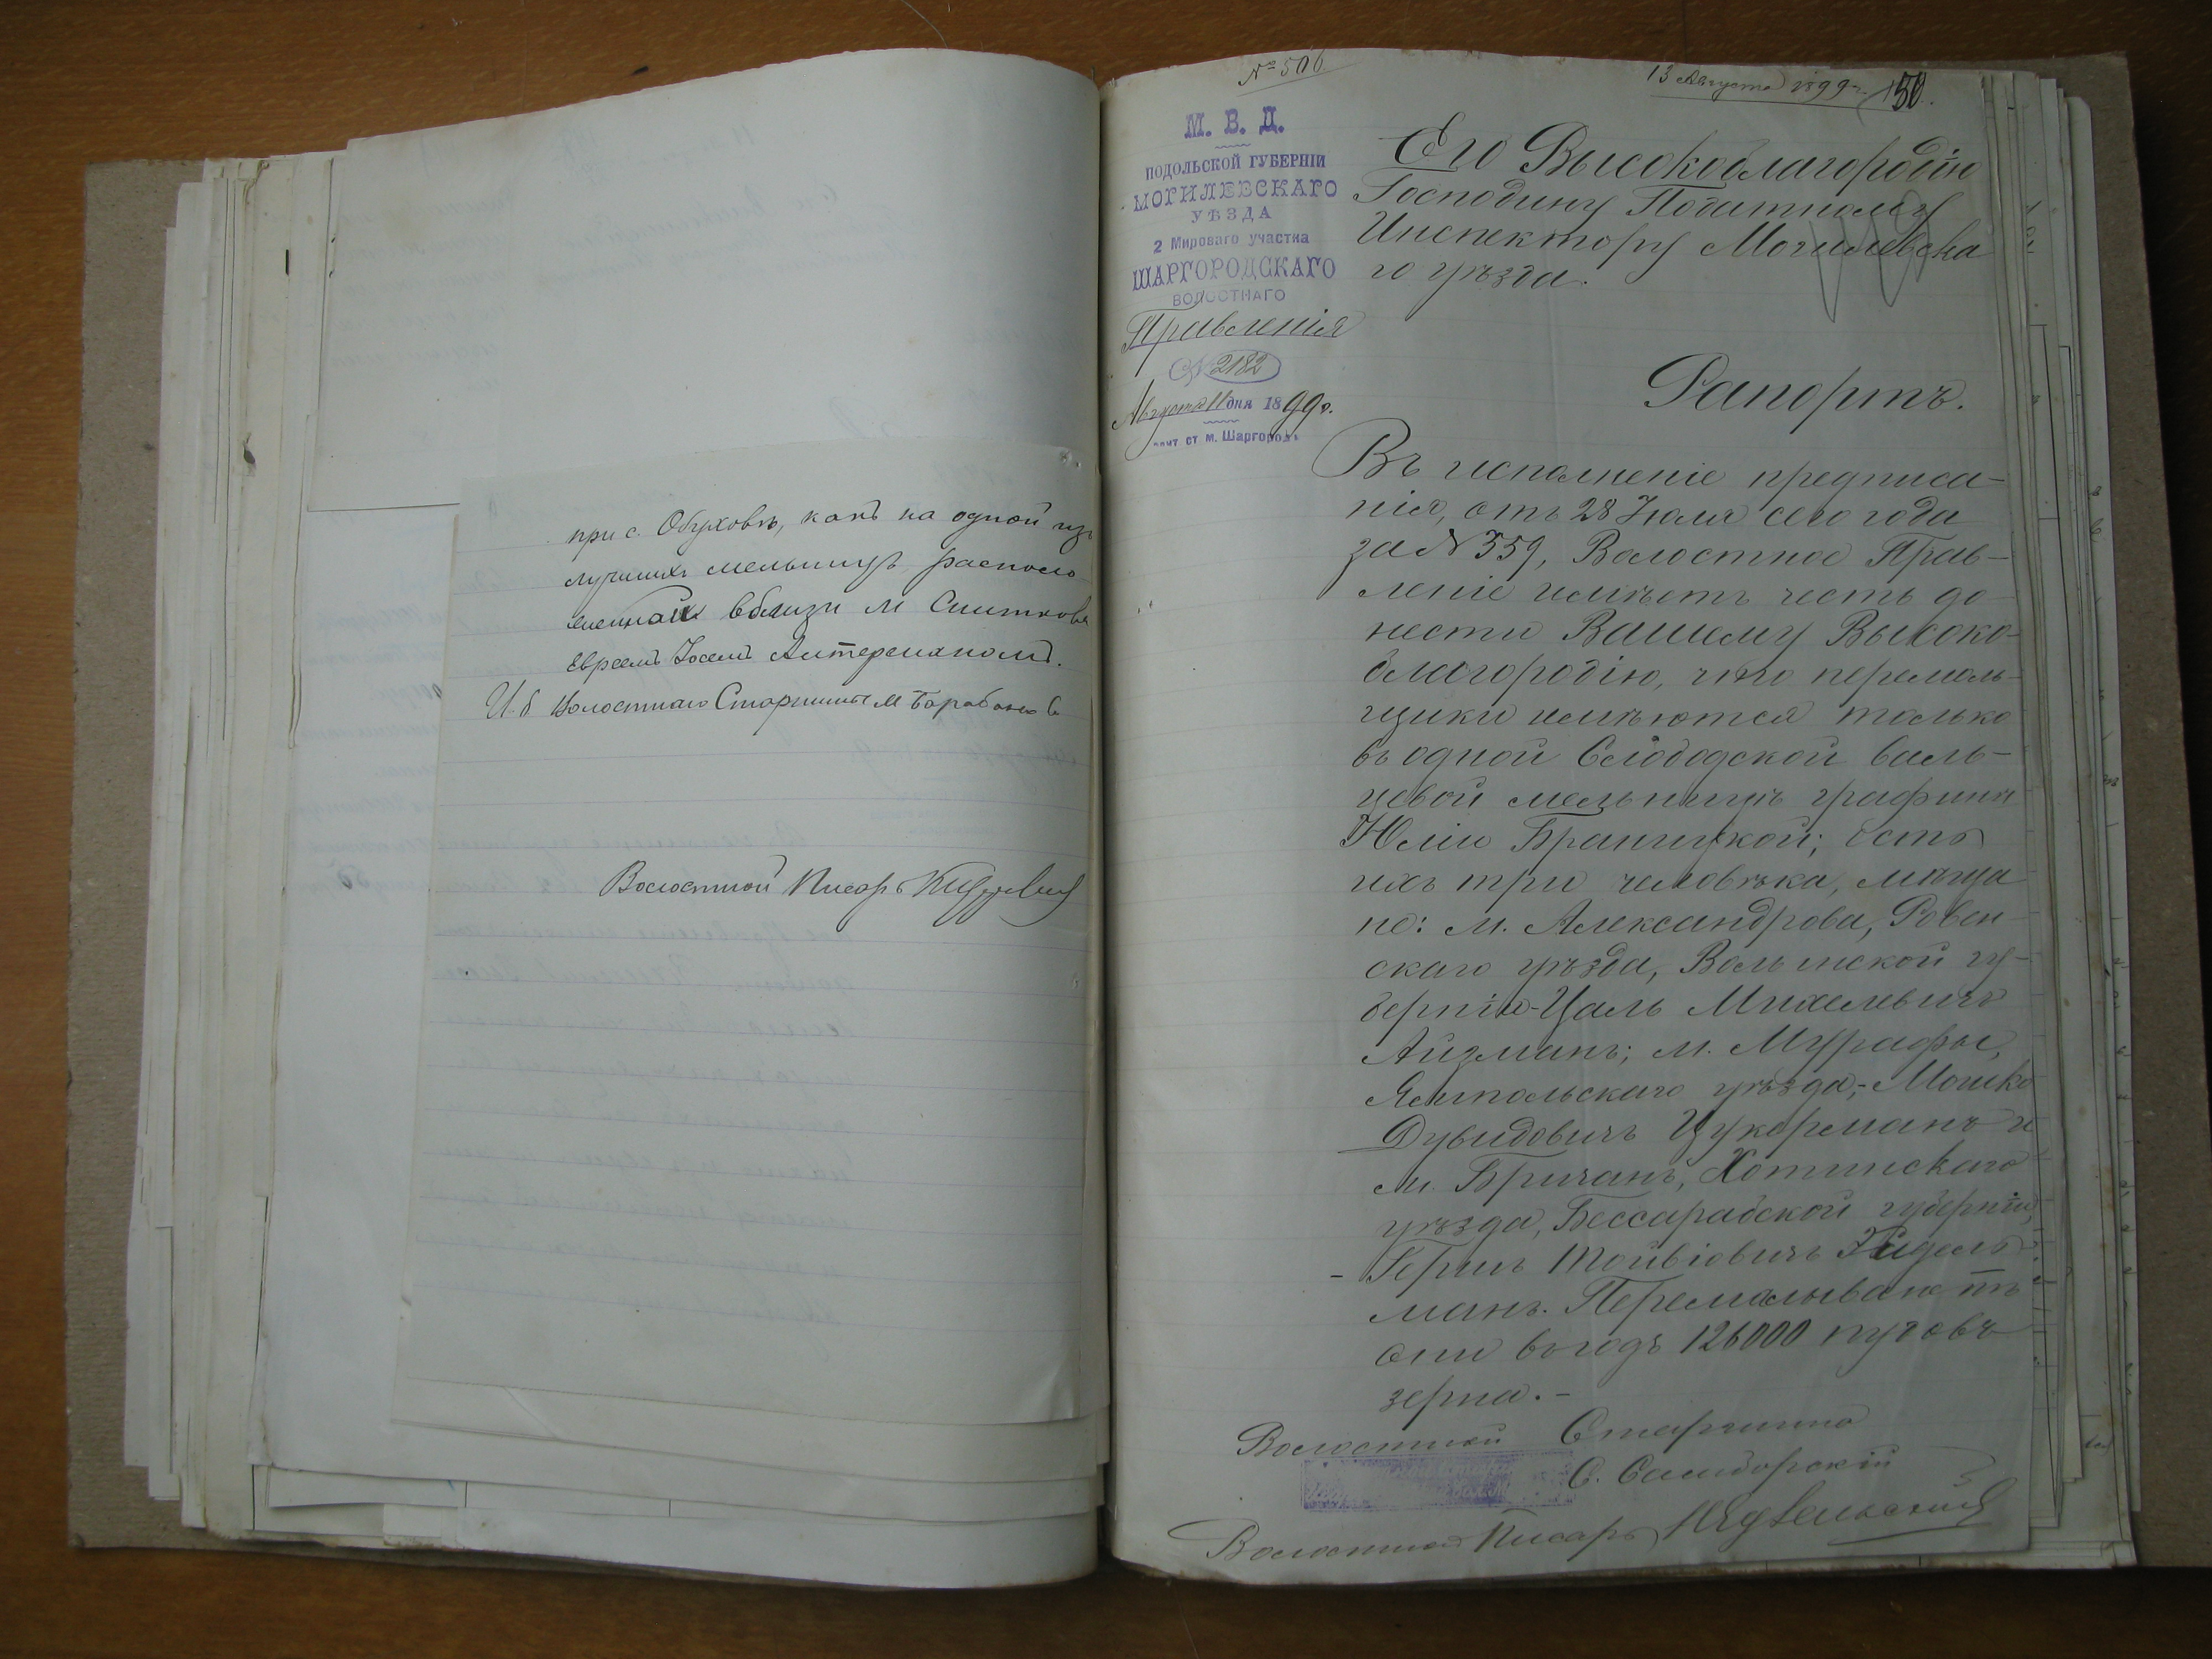 при с. Обуховѣ, какъ на одной изъ
лучшихъ мельницъ располо
женной вблизи м Сниткова
Евреемъ Іосемъ Аитерманомъ.
И. д Волостнаго Старшины М Барабановъ
Волостной Писарь
№ 506
13 Августа 1899 г. 150.
М. В. Д.
ПОДОЛЬСКОЙ ГУБЕРНІИ
МОГИЛЕВСКАГО
УѢЗДА
2 Мироваго участка
ШАРГОРОДСКАГО
ВОЛОСТНАГО
Правленія
№ 2182
Августа 11 дня 1899 г.
почт ст м. Шаргородъ
Его Высокоблагородію
Господину Податному
Инспектору Могилевска
го уѣзда.
Рапортъ.
Въ исполненіе предписа-
нія, отъ 28 Іюля сего года
за № 359, Волостное Прав-
леніе имѣетъ честь до
нести Вашему Высоко-
благородію, что перемоль-
щики имѣются только
въ одной Слободской валь-
цевой мельницѣ графини
Юліи Браницкой; есть
ихъ три человѣка, мѣща
не: м. Александрова, Ровен
скаго уѣзда, Волынской гу-
берніи-Цаль Михелевичъ
Айзманъ; м. Мурафы,
Ямпольскаго уѣзда,- Мошко
Дувидовичъ Цукерманъ и
м. Бричанъ, Хотинскаго
уѣзда, Бессарабской губерніи,
- Гершъ Тойвіовичъ Эйдель-
манъ. Перемалываютъ
они въ годъ 126000 пудовъ
зерна.-
Волостной Старшина
С. Самборскій
Волостной Писарь Недѣльскій